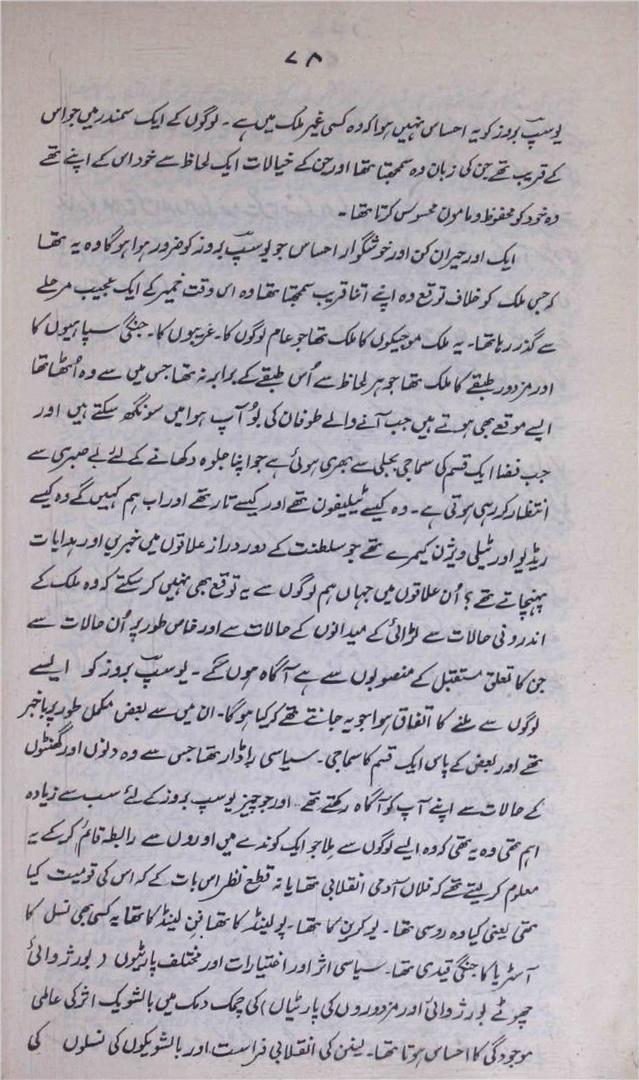 ۷۸
یوسپ بروز کو یہ احساس نہیں ہوا کہ وہ کسی غیر ملک میں ہے۔ لوگوں کے ایک سمندر میں جو اس
کے قریب تھے جن کی زبان وہ سمجھتا تھا اور جن کے خیالات ایک لحاظ سے خود اس کے اپنے تھے
وہ خود کو محفوظ و مامون محسوس کرتا تھا۔
ایک اور حیران کن اور خوشگوار احساس جو یوسپ بروز کو ضرور ہوا ہوگا وہ یہ تھا
کہ جس ملک کو خلاف توقع وہ اپنے اتنا قریب سمجھتا تھا وہ اس وقت خمیر کے ایک عجیب مرحلے
سے گذر رہا تھا۔ یہ ملک موجیکوں کا ملک تھا جو عام لوگوں کا۔ غریبوں کا۔ جنگی سپاہیوں کا
اور مزدور طبقے کا ملک تھا جو ہر لحاظ سے اُس طبقے کے برابر نہ تھا جس میں سے وہ اُٹھا تھا
ایسے موقع بھی ہوتے ہیں جب آنے والے طوفان کی بُو آپ ہوا میں سونگھ سکتے ہیں اور
جب فضا ایک قسم کی سماجی بجلی سے بھری ہوئی ہے جو اپنا جلوہ دکھانے کے لئے بے صبری سے
انتظار کر رہی ہوتی ہے۔ وہ کیسے ٹیلیفون تھے اور کیسے تار تھے اور اب ہم کہیں گے وہ کیسے
ریڈیو اور ٹیلی ویژن کیمرے تھے جو سلطنت کے دور دراز علاقوں میں خبریں اور ہدایات
پہنچاتے تھے؟ اُن علاقوں میں جہاں ہم لوگوں سے یہ توقع بھی نہیں کر سکتے کہ وہ ملک کے
اندرونی حالات سے لڑائی کے میدانوں کے حالات سے اور خاص طور پر اُن حالات سے
جن کا تعلق مستقبل کے منصوبوں سے ہے آگاہ ہوں گے۔ یوسپ بروز کو ایسے
لوگوں سے ملنے کا اتفاق ہوا جو یہ جانتے تھے کہ کیا ہوگا۔ ان میں سے بعض مکمل طور پر باخبر
تھے اور بعض کے پاس ایک قسم کا سماجی۔ سیاسی راڈار تھا جس سے وہ دنوں اور گھنٹوں
کے حالات سے اپنے آپ کو آگاہ رکھتے تھے۔ اور جو چیز یوسپ بروز کے لئے سب سے زیادہ
اہم تھی وہ یہ تھی کہ وہ ایسے لوگوں سے ملا جو ایک کوندے میں اوروں سے رابطہ قائم کر کے یہ
معلوم کر لیتے تھے کہ فلاں آدمی انقلابی تھا یا نہ قطع نظر اس بات کے کہ اس کی قومیت کیا
تھی یعنی کیا وہ روسی تھا۔ یوکرین کا تھا۔ پولینڈ کا تھا فن لینڈ کا تھا یہ کسی بھی نسل کا
آسٹریا کا جنگی قیدی تھا۔ سیاسی اثر اور اختیارات اور مختلف پارٹیوں (بورژوائی
چھوٹے بورژوائی اور مزدوروں کی پارٹیاں) کی چمک دمک میں بالشویک اثر کی عالمی
موجودگی کا احساس ہوتا تھا۔ لینن کی انقلابی فراست اور بالشویکوں کی نسلوں کی